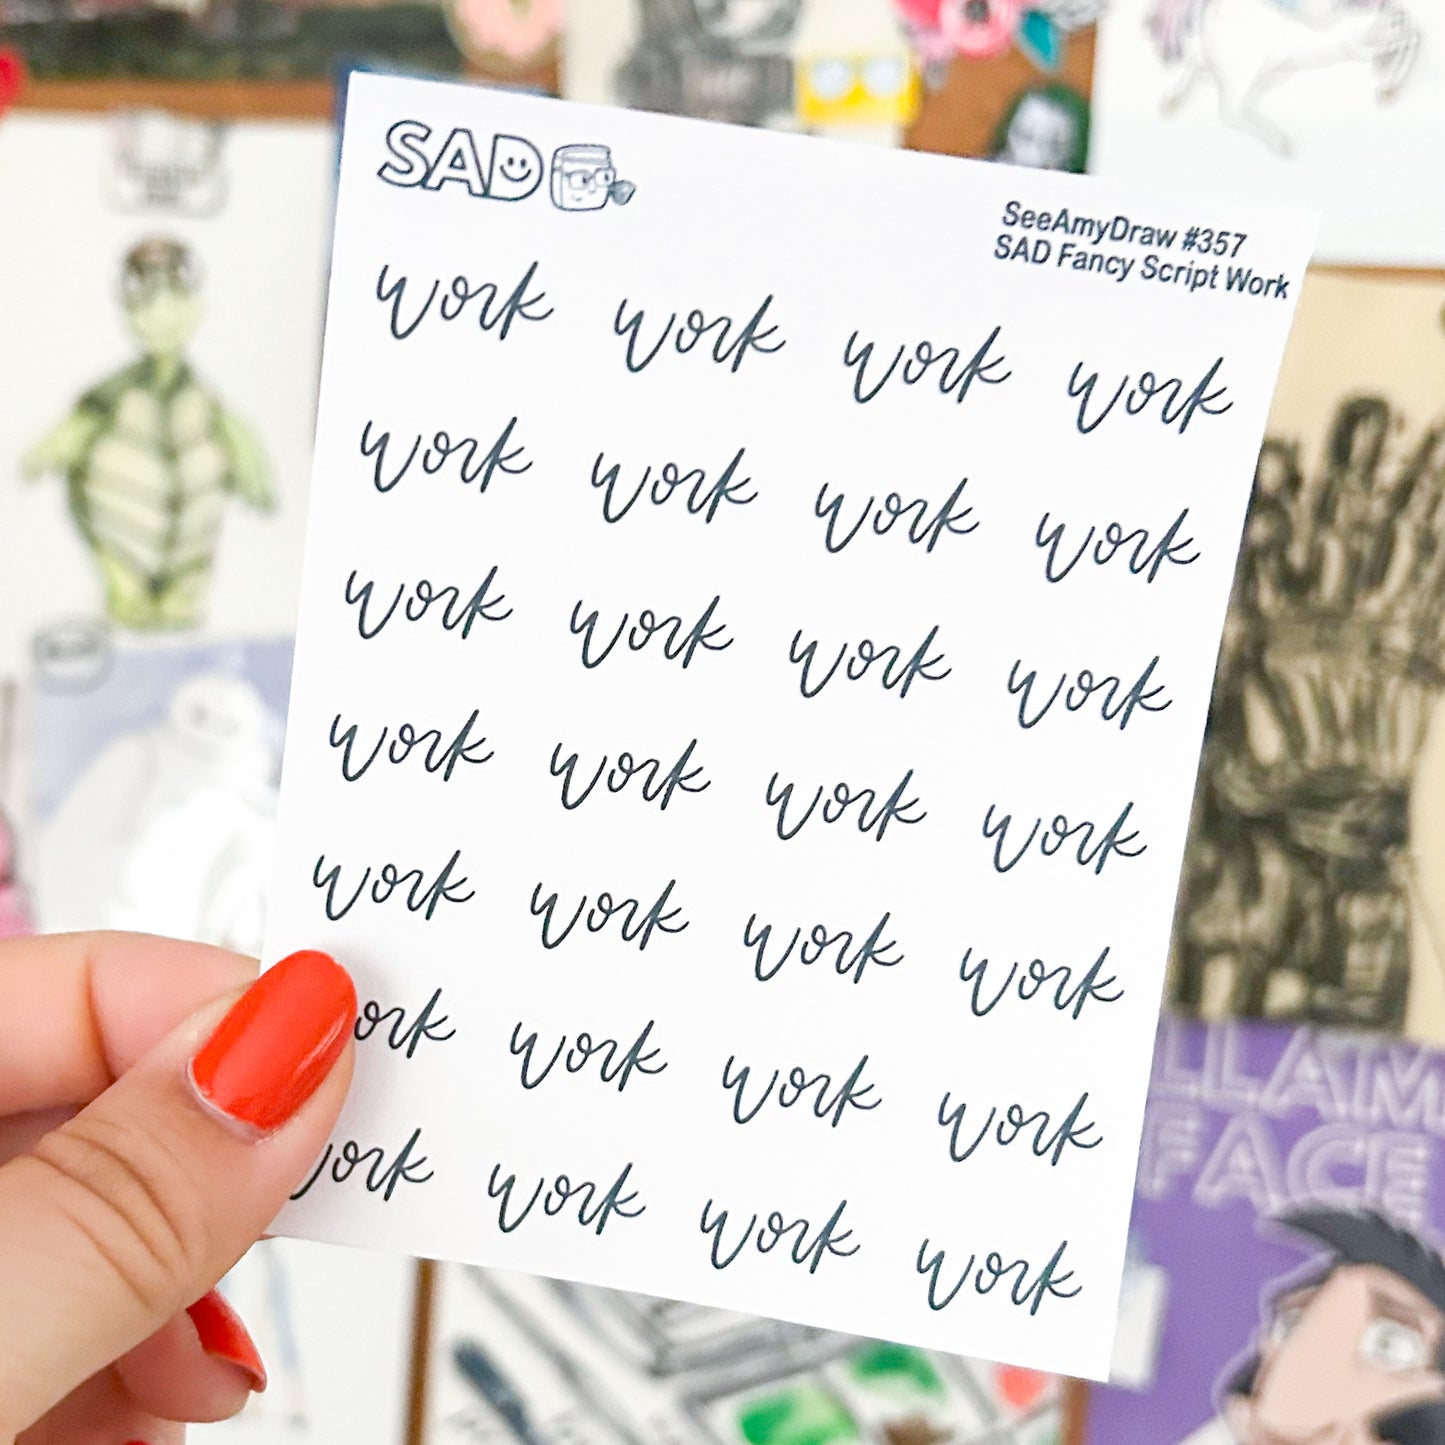 SAD
SeeAmyDraw #357
SAD Fancy Script Work
work work work work
work work work work
work work work work
work work work work
work work work work
work work work
work work work
LLAM
FACE